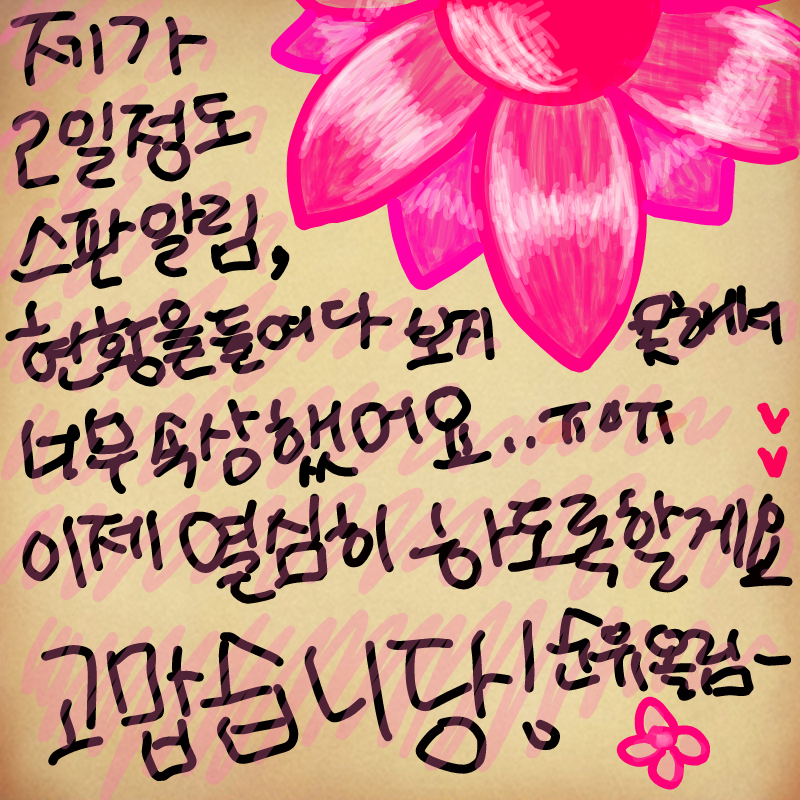 제가
2일정도
스판알림,
현황을들여다 보지 못해서
너무 속상했어요..ㅠㅇㅠ
이제 열심히 하도록할게요
고맙습니당! 순위올림~